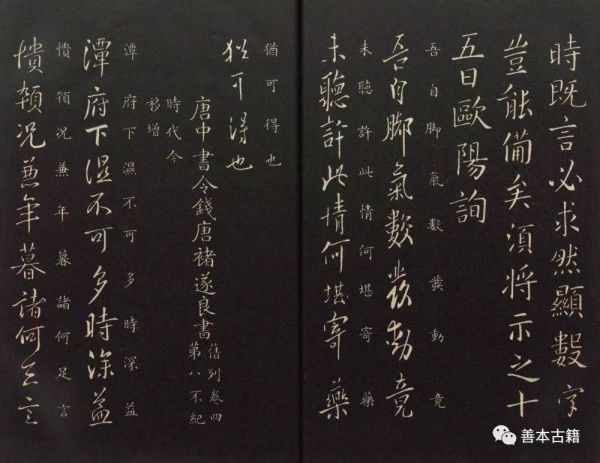 時既言必求然顯數字
豈能備矣須將示之十
五日歐陽詢
吾自脚氣數發動竟
吾自脚氣數發動竟
未聽許此情何堪寄藥
未聽許此情何堪寄藥
猶可得也
猶可得也
唐中書令錢唐褚遂良書
舊列卷四
第八不紀
時代今
移增
潭府下濕不可多時深益
潭府下濕不可多時深益
憒顇况兼年暮諸何足言
憒顇况兼年暮諸何足言
善本古籍